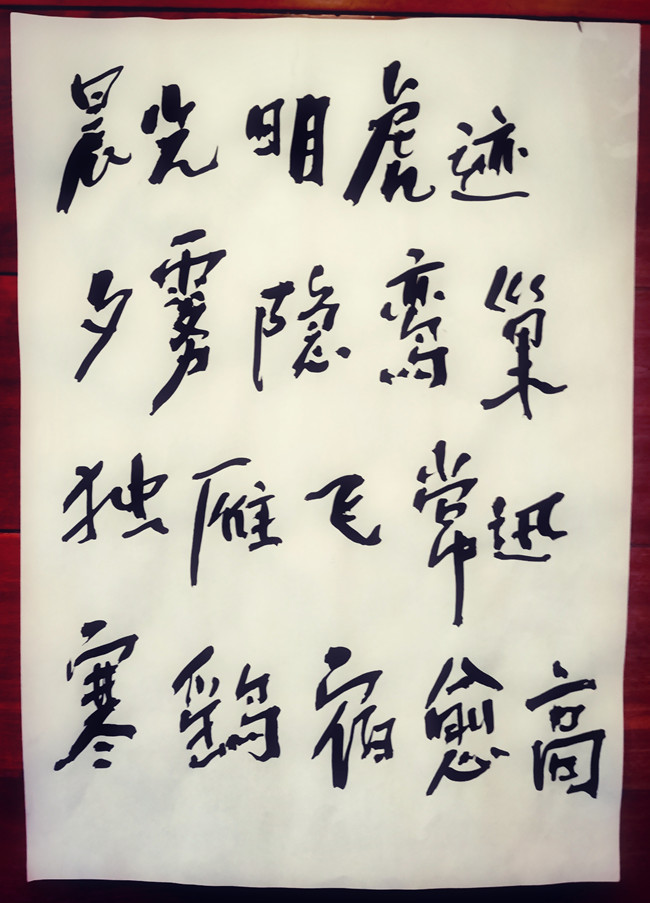 晨光明虎迹
夕雾隐鸾巢
独雁飞常迅
寒鷄宿愈高